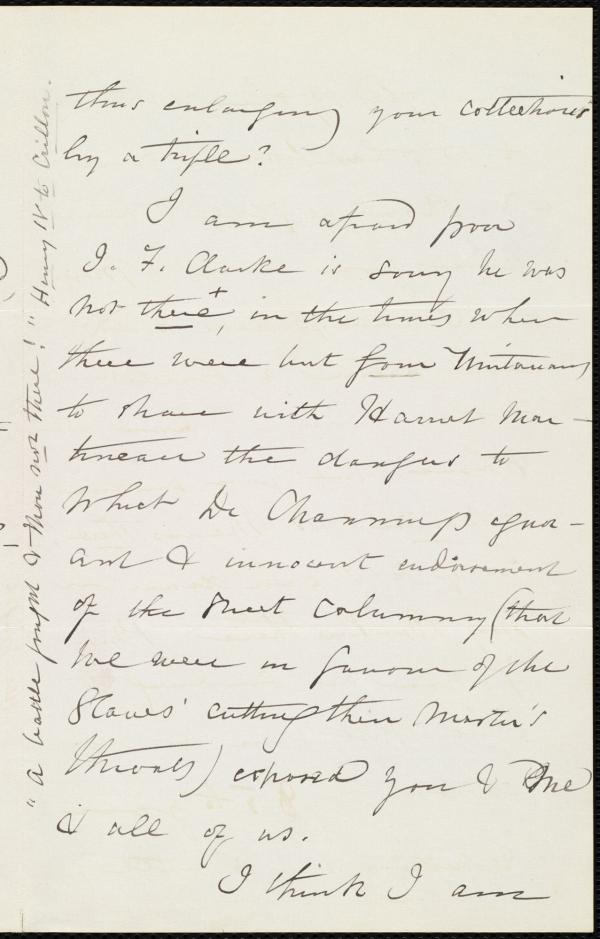 thus enlarging your collections
by a trifle?
I am afraid poor
J. F. Clarke is sorry he was
not there+, in the times when
there were but four Unitarians
to share with Harriet Mar-
tineau the dangers to
which Dr Channing's ignor-
ant & innocent endorsement
of the Street Calumny (that
we were in favour of the
Slaves' cutting their Master's
throats) exposed you & me
& all of us.
I think I am
"A battle fought & thou not there!" Henry IV to Crillon.